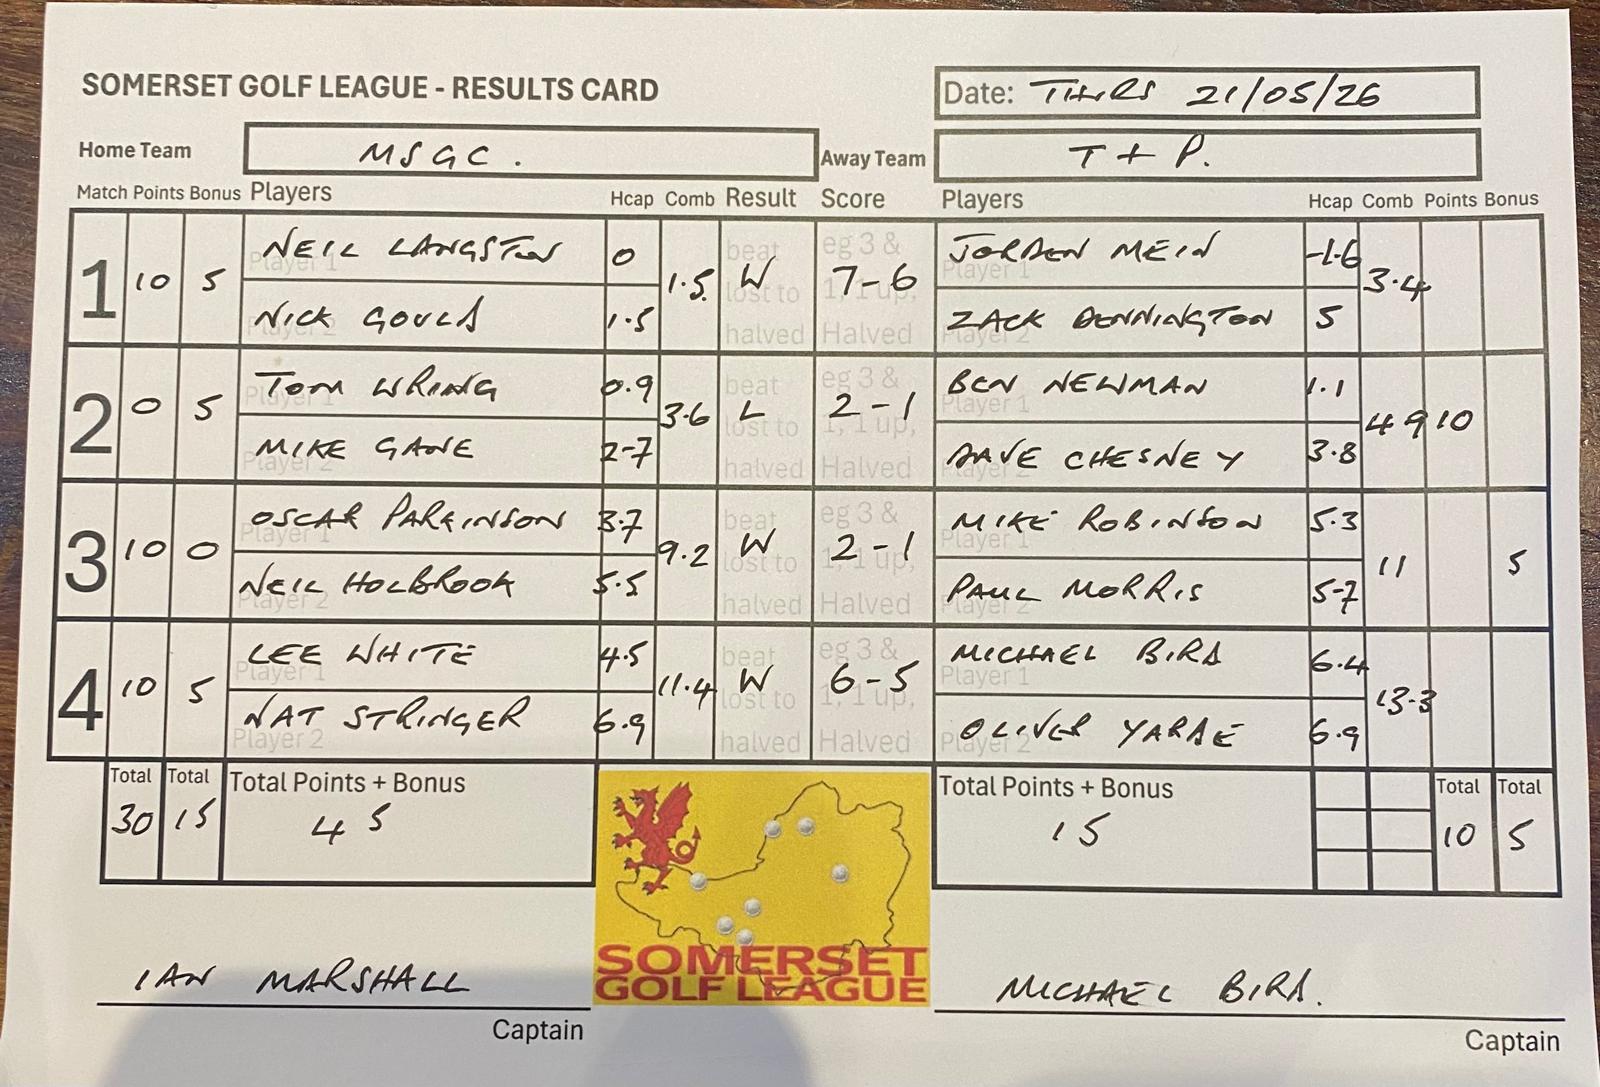 SOMERSET GOLF LEAGUE - RESULTS CARD
Date: THURS 21/05/26
Home Team MSGC. Away Team T + P.
Match Points Bonus Players Hcap Comb Result Score Players Hcap Comb Points Bonus
1 10 5 NEIL LANGSTON 0 1.5 W 7-6 JORDEN MEIN -1.6 3.4
Player 1 beat eg 3 & Player 1
lost to 1, 1 up,
NICK GOULD 1.5 ZACK DENNINGTON 5
Player 2 halved Halved Player 2
2 0 5 TOM WRING 0.9 3.6 L 2-1 BEN NEWMAN 1.1 4 9 10
Player 1 beat eg 3 & Player 1
lost to 1, 1 up,
MIKE GANE 2-7 DAVE CHESNEY 3.8
Player 2 halved Halved Player 2
3 10 0 OSCAR PARKINSON 3.7 9.2 W 2-1 MIKE ROBINSON 5.3 11 5
Player 1 beat eg 3 & Player 1
lost to 1, 1 up,
NEIL HOLBROOK 5.5 PAUL MORRIS 5-7
Player 2 halved Halved Player 2
4 10 5 LEE WHITE 4.5 11.4 W 6-5 MICHAEL BIRD 6.4 13-3
Player 1 beat eg 3 & Player 1
lost to 1, 1 up,
NAT STRINGER 6.9 OLIVER 6.9
Player 2 halved Halved Player 2
Total Total Total Points + Bonus Total Points + Bonus Total Total
30 15 45 15 10 5
SOMERSET
GOLF LEAGUE
IAN MARSHALL MICHAEL BIRD.
Captain Captain